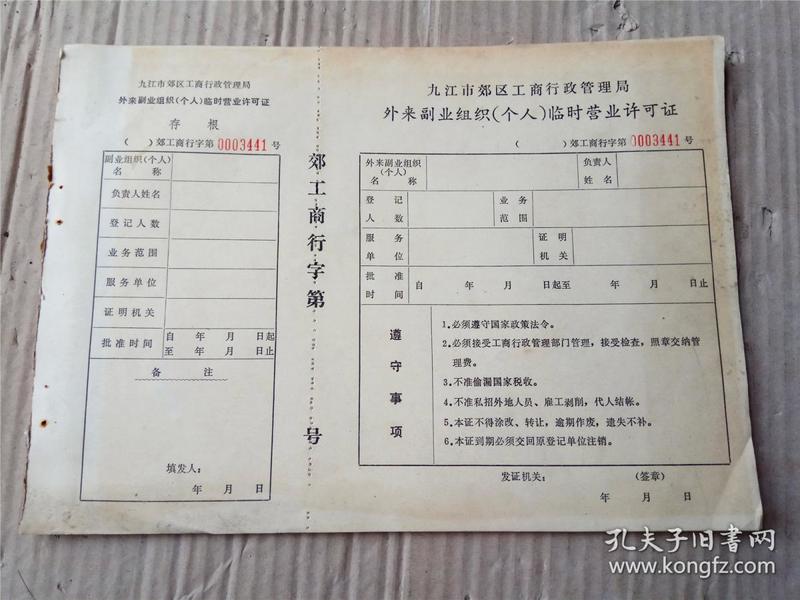 九江市郊区工商行政管理局
外来副业组织(个人)临时营业许可证
存根
( )郊工商行字第0003441号
副业组织(个人)
名称
负责人姓名
登记人数
业务范围
服务单位
证明机关
批准时间
自 年 月 日起
至 年 月 日止
备注
填发人:
年 月 日
郊工商行字第 号
九江市郊区工商行政管理局
外来副业组织(个人)临时营业许可证
( )郊工商行字第0003441号
外来副业组织
(个人)
名称
负责人
姓名
登记
人数
业务
范围
服务
单位
证明
机关
批准
时间
自 年 月 日起至 年 月 日止
遵守事项
1.必须遵守国家政策法令。
2.必须接受工商行政管理部门管理,接受检查,照章交纳管
理费。
3.不准偷漏国家税收。
4.不准私招外地人员、雇工剥削,代人结帐。
5.本证不得涂改、转让,逾期作废,遗失不补。
6.本证到期必须交回原登记单位注销。
发证机关: (签章)
年 月 日
孔夫子旧书网
www.kongfz.com